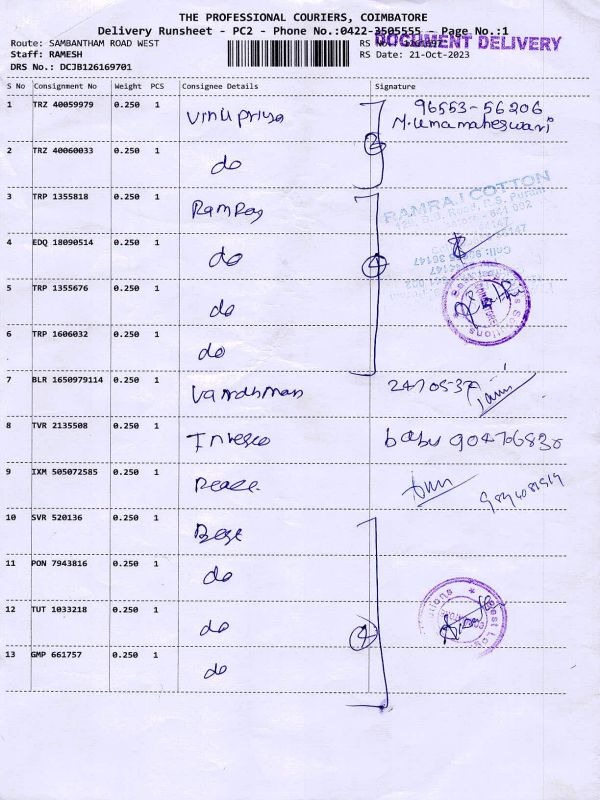 THE PROFESSIONAL COURIERS, COIMBATORE
Delivery Runsheet - PC2 - Phone No.:0422-3505555 - Page No.:1
DOCUMENT DELIVERY
Route: SAMBANTHAM ROAD WEST
Staff: RAMESH RS Date: 21-Oct-2023
DRS No.: DCJB126169701
S No Consignment No Weight PCS Consignee Details Signature
1 TRZ 40059979 0.250 1 Vinupriya 96553-56206
M.Umamaheswari
2 TRZ 40060033 0.250 1 do 2
3 TRP 1355818 0.250 1 Ramraj
RAMRAJ COTTON
4 EDQ 18090514 0.250 1 do 4
5 TRP 1355676 0.250 1 do
6 TRP 1606032 0.250 1 do
7 BLR 1650979114 0.250 1 Vardhman
8 TVR 2135508 0.250 1 Invesco babu
9 IXM 505072585 0.250 1 Peace
10 SVR 520136 0.250 1 Best
11 PON 7943816 0.250 1 do
12 TUT 1033218 0.250 1 do 4
13 GMP 661757 0.250 1 do